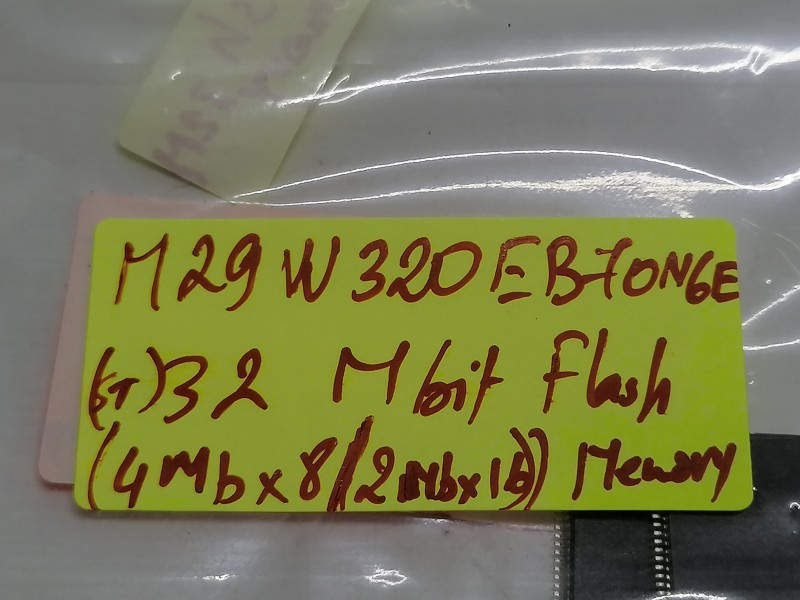 M29W320EB70N6E
(ST) 32 Mbit Flash
(4Mbx8/2Mbx16) Memory